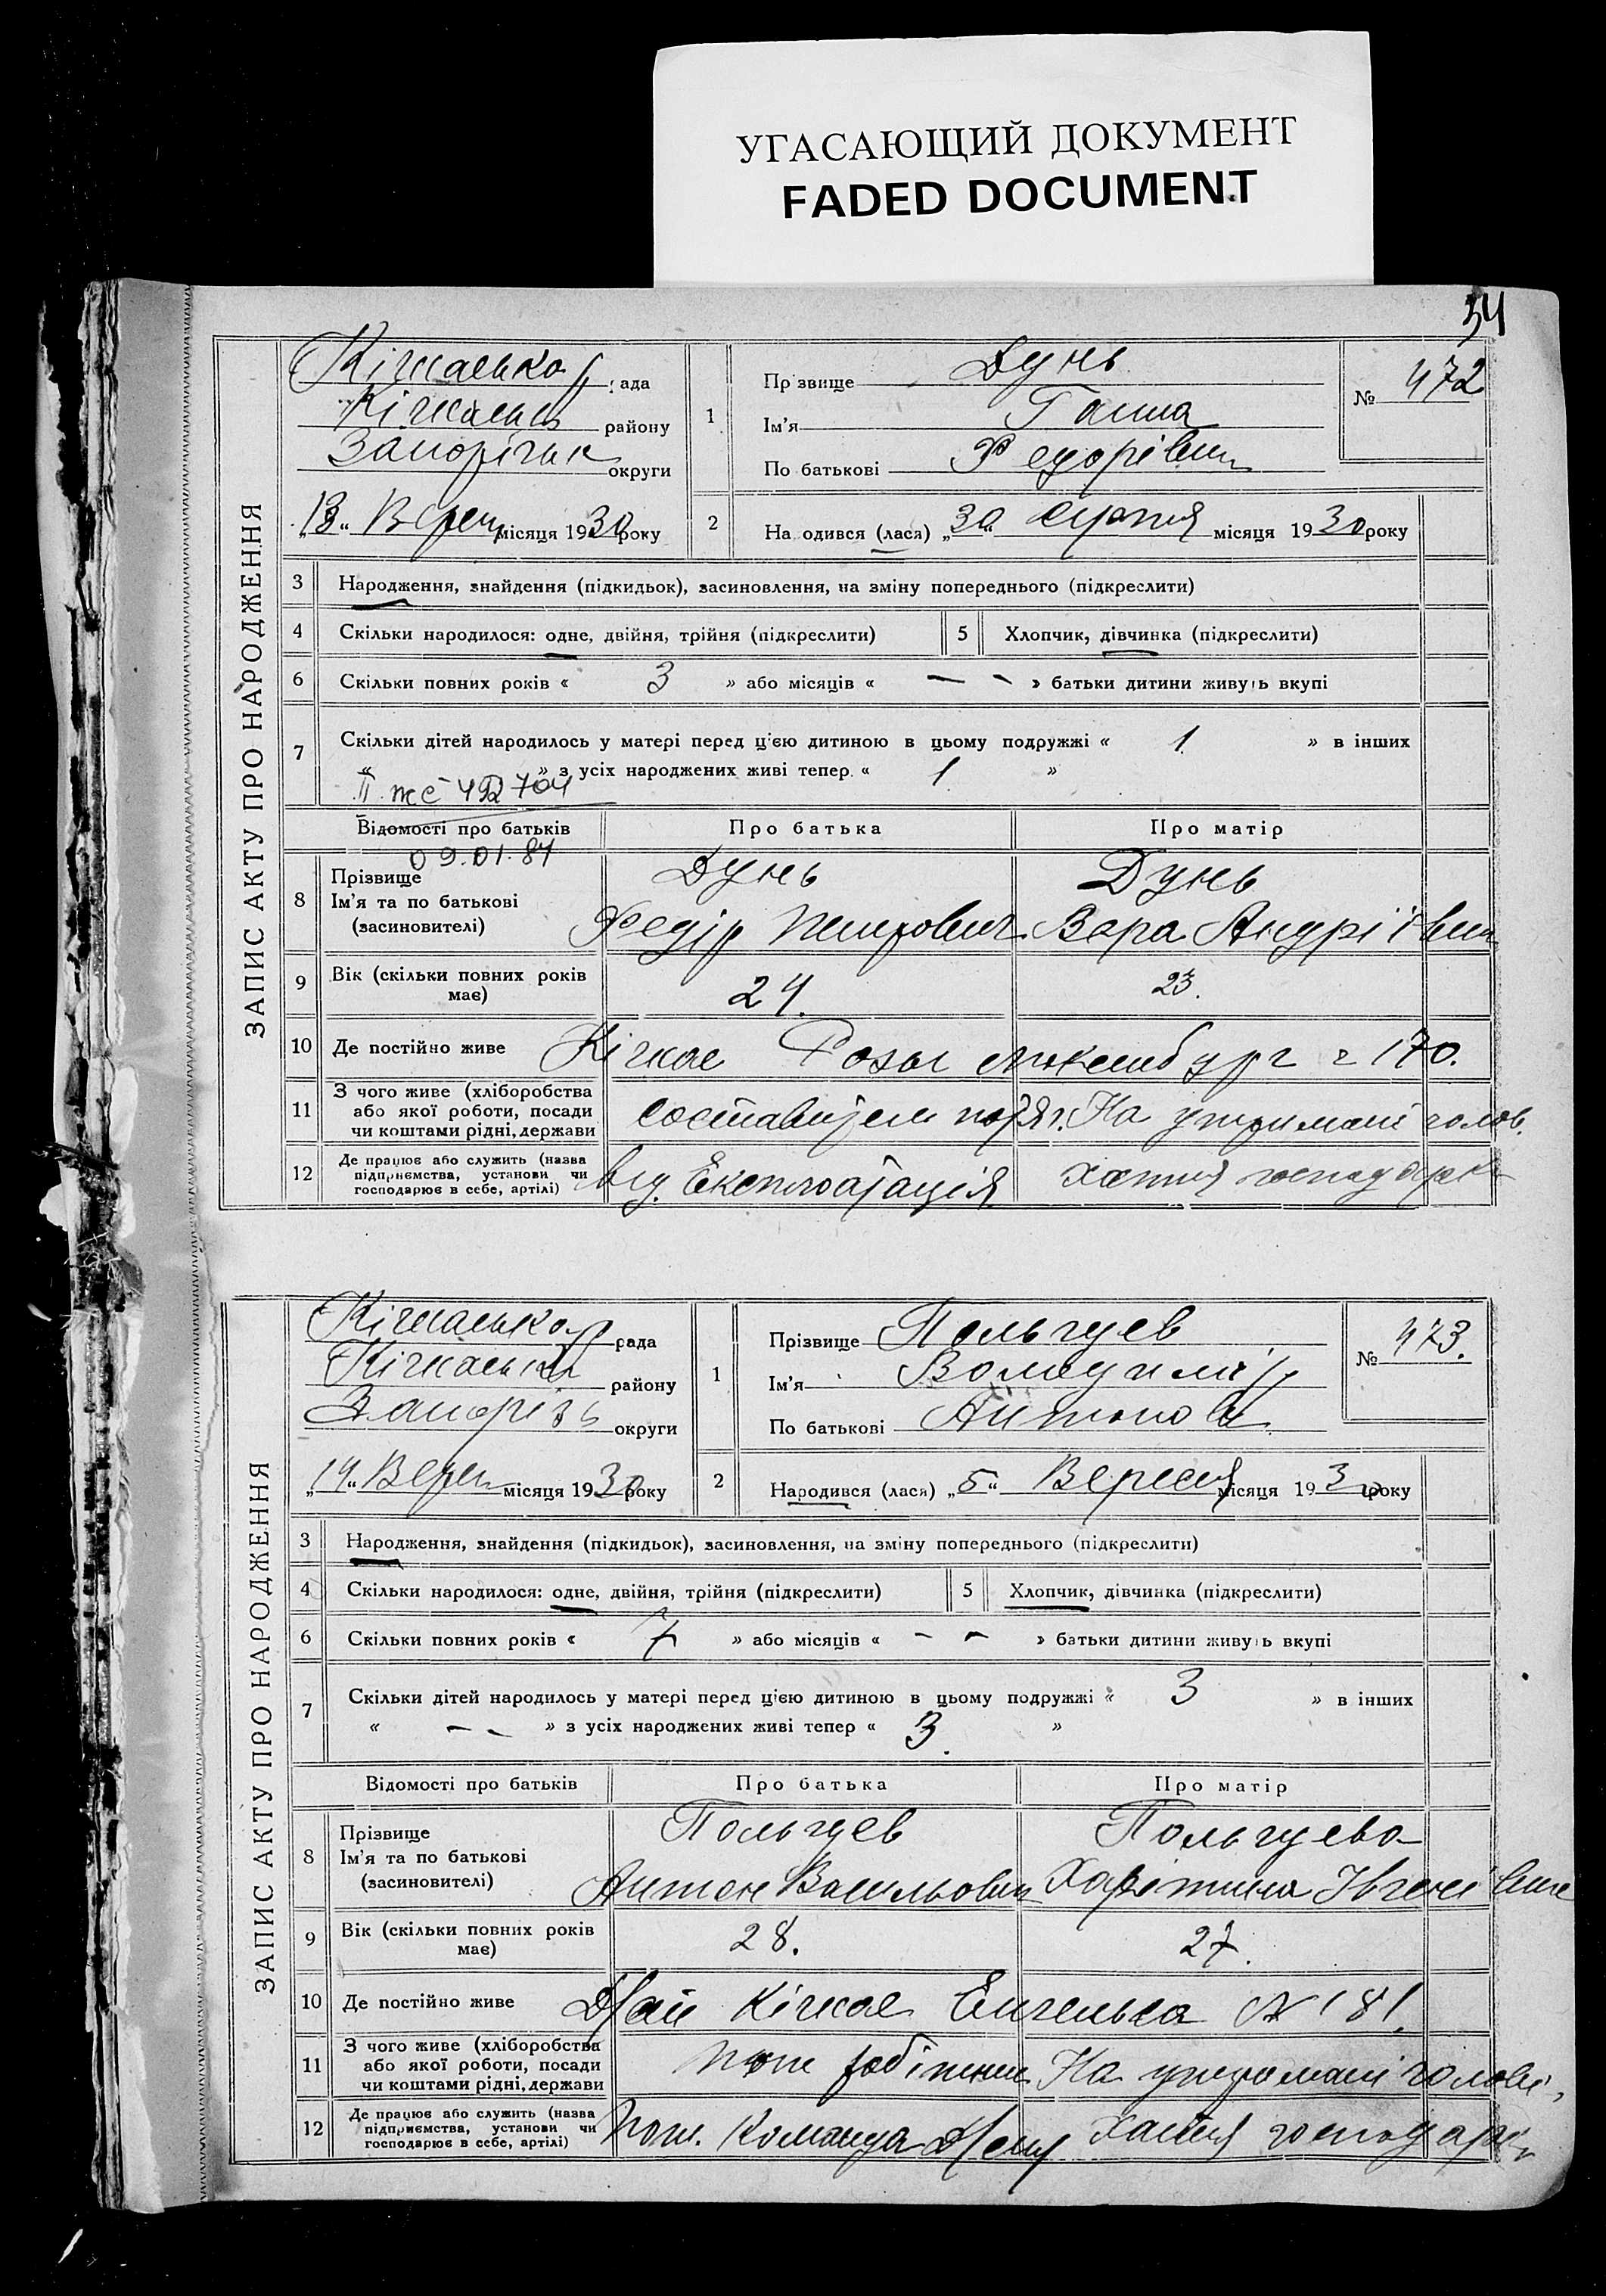 УГАСАЮЩИЙ ДОКУМЕНТ
FADED DOCUMENT
34
ЗАПИС АКТУ ПРО НАРОДЖЕННЯ
Кічкаська рада
Кічкаськ району
Запорізьк округи
„13“ Верес місяця 1930 року
1 Прізвище Дунь
Ім'я Ганна
По батькові Федорівна
№ 472
2 Народився (лася) „30“ Серпня місяця 1930 року
3 Народження, знайдення (підкидьок), засиновлення, на зміну попереднього (підкреслити)
4 Скільки народилося: одне, двійня, трійня (підкреслити) 5 Хлопчик, дівчинка (підкреслити)
6 Скільки повних років « 3 » або місяців « — — » батьки дитини живуть вкупі
7 Скільки дітей народилось у матері перед цією дитиною в цьому подружжі « 1 » в інших
« » з усіх народжених живі тепер « 1 »
II ЖС 492704
Відомості про батьків Про батька Про матір
09.01.84
8 Прізвище Дунь Дунь
Ім'я та по батькові
(засиновителі) Федір Петрович Вера Андріївна
9 Вік (скільки повних років має) 24. 23.
10 Де постійно живе Кічкас Розы Люксембург 170.
11 З чого живе (хліборобства
або якої роботи, посади
чи коштами рідні, держави Составитель На утриманні чолов.
12 Де працює або служить (назва
підприємства, установи чи
господарює в себе, артілі) Від. Експлоатація Хатня господарка
ЗАПИС АКТУ ПРО НАРОДЖЕННЯ
Кічкаська рада
Кічкаськ району
Запорізь округи
„14“ Верес місяця 1930 року
1 Прізвище Польгуев
Ім'я Володимір
По батькові Антонов
№ 473.
2 Народився (лася) „5“ Вересня місяця 1930 року
3 Народження, знайдення (підкидьок), засиновлення, на зміну попереднього (підкреслити)
4 Скільки народилося: одне, двійня, трійня (підкреслити) 5 Хлопчик, дівчинка (підкреслити)
6 Скільки повних років « 7 » або місяців « — — » батьки дитини живуть вкупі
7 Скільки дітей народилось у матері перед цією дитиною в цьому подружжі « 3 » в інших
« — — » з усіх народжених живі тепер « 3. »
Відомості про батьків Про батька Про матір
8 Прізвище Польгуев Польгуева
Ім'я та по батькові
(засиновителі) Антон Васильович Харітина
9 Вік (скільки повних років має) 28. 27.
10 Де постійно живе Кічкас Енгельса № 181.
11 З чого живе (хліборобства
або якої роботи, посади
чи коштами рідні, держави На утриманні чолові
12 Де працює або служить (назва
підприємства, установи чи
господарює в себе, артілі) Пож. Команда Хатня господарка